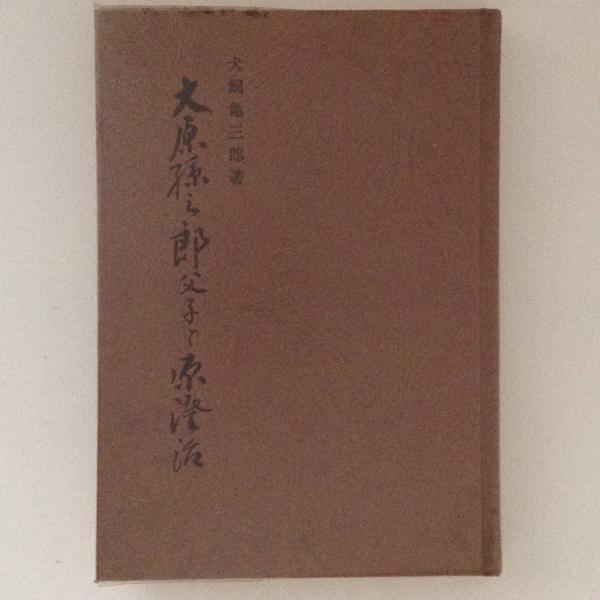 犬飼亀三郎著
大原孫三郎父子と原澄治